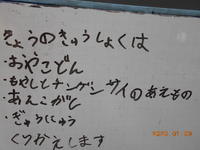 きょうのきゅうしょくは
・おやこどん
・もやしとナンゲンサイのあえもの
・あんこがし
・ぎゅうにゅう
くりかえします